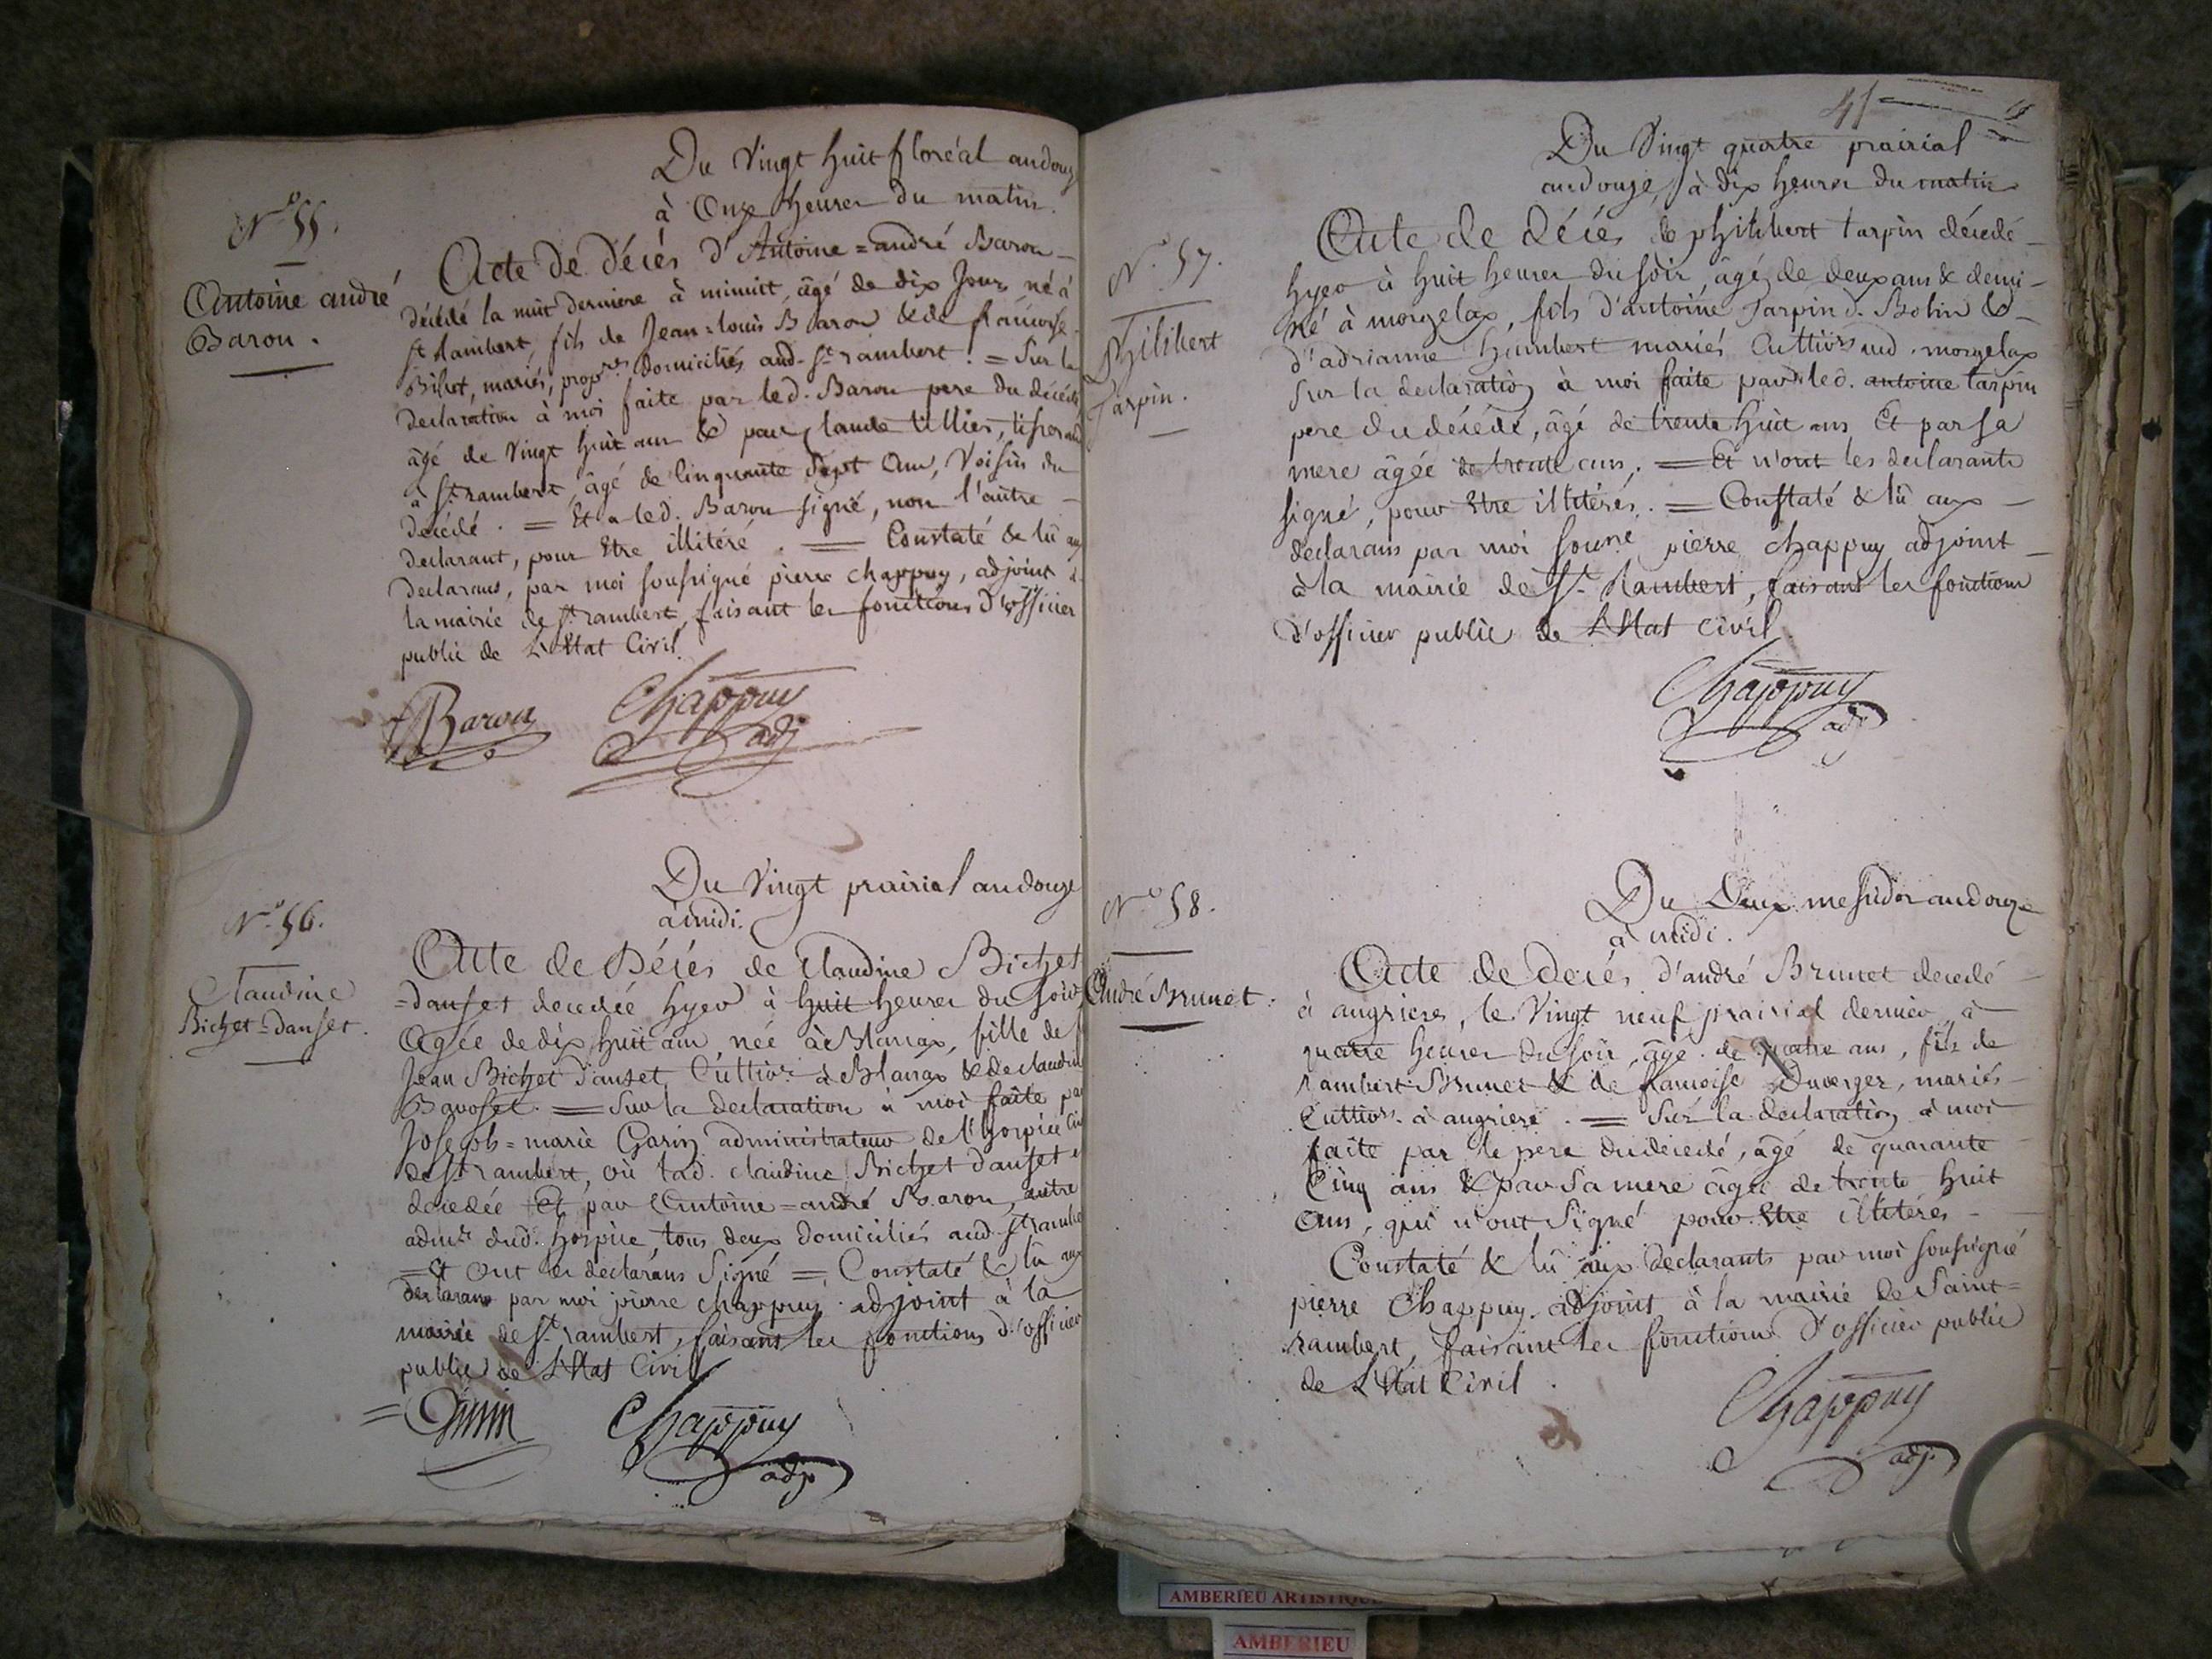 Du Vingt huit floréal an douze
à Onze heures du matin.
N.º 55.
Antoine andré
Baron.
Acte de Décés d'Antoine = andré Baron
décédé la nuit derniere à minuit, âgé de dix Jours né à
St rambert, fils de Jean = louis Baron & de françoise
mariés, propres domiciliés aud. St rambert. = Sur la
Declaration à moi faite par led. Baron pere du décédé
âgé de Vingt huit ans & par Claude tillier, tisserand
à St rambert, âgé de Cinquante Sept Ans, Voisin du
décédé. = Et a led. Baron signé, non l'autre
declarant, pour Etre illitéré. = Constaté & lû aux
declarans, par moi soussigné pierre chappuy, adjoint à
la mairie de St rambert, faisant les fonctions d'officier
public de L'Etat Civil.
Baron Chappuy
adj
Du Vingt prairial an douze
à midi.
N.º 56.
Claudine
Bichet = danset.
Acte de Décés de Claudine Bichet
= danset decedée hyer à huit heures du soir,
Agée de dix huit ans, née à Blanax, fille de
Jean Bichet danset Cultivr à Blanax & de claudine
Bavoset. = Sur la declaration à moi faite par
Joseph = marie Garin administrateur de l'hospice
de St rambert, où lad. claudine Bichet danset
decedée Et par Antoine = andré Baron, autre
admr. dud. hospice, tous deux domiciliés aud. St rambert
= Et Ont les declarans Signé =. Constaté & lû aux
declarans par moi pierre chappuy adjoint à la
mairie de St rambert, faisant les fonctions d'officier
public de L'Etat Civil
= Garin Chappuy
adj.
Du Vingt quatre prairial
an douze, à dix heures du matin
N.º 57.
Philibert
Tarpin.
Acte de décés de philibert tarpin décédé
hyer à huit heures du soir, âgé de deux ans & demi
né à morgelax, fils d'antoine Tarpin d. Bolin &
d'adrianne humbert mariés Cultivrs aud. morgelax
Sur la declaration à moi faite par led. antoine tarpin
pere du décédé, âgé de trente huit ans Et par sa
mere âgée de trente ans. = Et n'ont les declarants
signé, pour Etre illitérés. = Constaté & lû aux
declarans par moi sousné pierre chappuy adjoint
à la mairie de St. Rambert, faisant les fonctions
d'officier public de L'Etat civil.
Chappuy
adj
Du Deux messidor an douze
à midi.
N.º 58.
André Brunet.
Acte de decés d'andré Brunet decedé
à angrieres, le Vingt neuf prairial dernier à
quatre heures du soir, âgé de quatre ans, fils de
rambert Brunet & de françoise Duverger, mariés
Cultivrs. à angriere. = Sur la declaration à moi
faite par le pere du decedé, âgé de quarante
Cinq ans & par Sa mere âgée de trente huit
Ans, qui n'ont Signé pour Etre illitérés
Constaté & lû aux declarants par moi soussigné
pierre Chappuy, adjoint à la mairie de Saint =
rambert, faisant les fonctions d'officier public
de L'Etat Civil.
Chappuy
adj.
AMBERIEU ARTISTIQUE
AMBERIEU